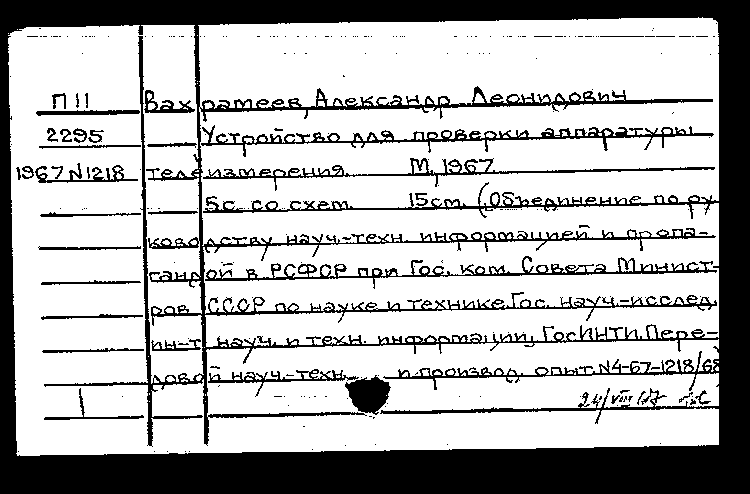 П 11 Вахрамеев, Александр Леонидович
2295 Устройство для проверки аппаратуры
1967 N1218 телеизмерения. М, 1967.
5с. со схем. 15см. (Объединение по ру-
ководству науч.-техн. информацией и пропа-
гандой в РСФСР при Гос. ком. Совета Минист-
ров СССР по науке и технике. Гос. науч.-исслед.
ин-т науч. и техн. информации, ГосИНТИ. Пере-
довой науч.-техн. и производ. опыт. N4-67-1218/68
24/VIII 67